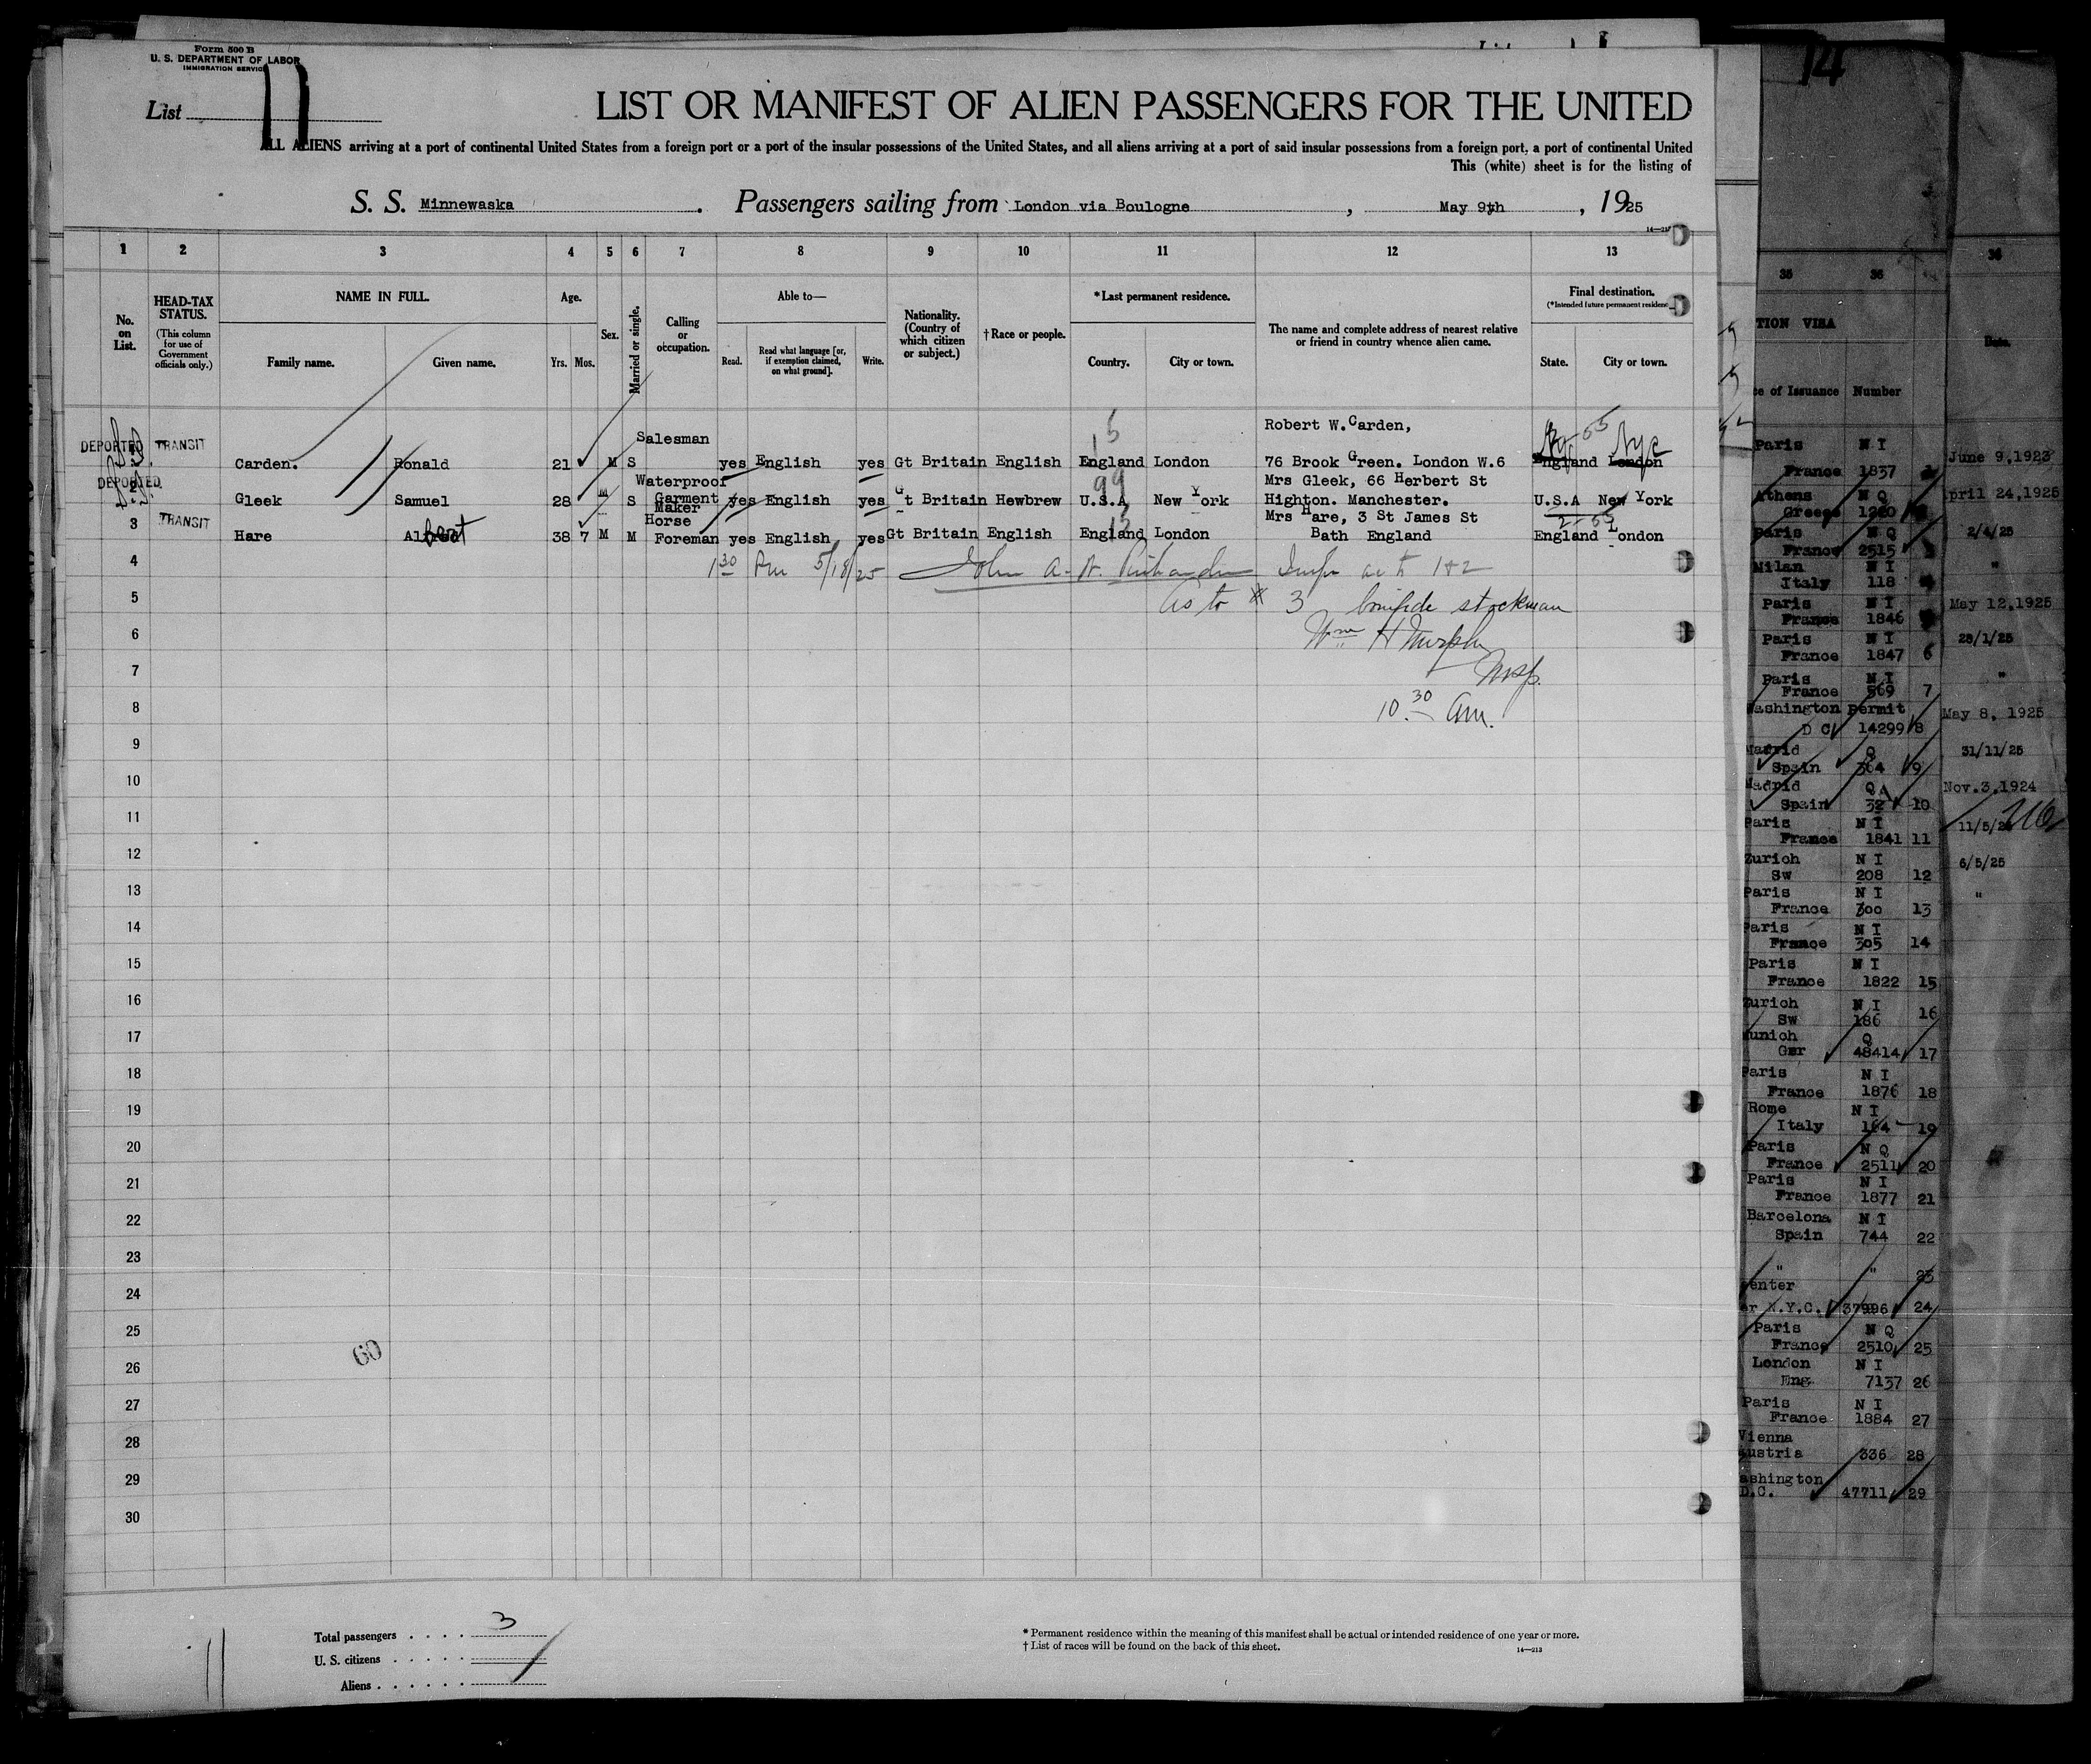 Form 500 B
U. S. DEPARTMENT OF LABOR
IMMIGRATION SERVICE
List 11
LIST OR MANIFEST OF ALIEN PASSENGERS FOR THE UNITED
ALL ALIENS arriving at a port of continental United States from a foreign port or a port of the insular possessions of the United States, and all aliens arriving at a port of said insular possessions from a foreign port, a port of continental United
This (white) sheet is for the listing of
S. S. Minnewaska. Passengers sailing from London via Boulogne, May 9th, 1925
1 2 3 4 5 6 7 8 9 10 11 12 13
No. on List.
HEAD-TAX STATUS.
(This column for use of Government officials only.)
NAME IN FULL.
Family name. Given name.
Age.
Yrs. Mos.
Sex.
Married or single.
Calling or occupation.
Able to—
Read. Read what language [or, if exemption claimed, on what ground]. Write.
Nationality. (Country of which citizen or subject.)
† Race or people.
*Last permanent residence.
Country. City or town.
The name and complete address of nearest relative or friend in country whence alien came.
Final destination.
(*Intended future permanent residence
State. City or town.
DEPORTED TRANSIT Carden. Ronald 21 M S Salesman yes English yes Gt Britain English England London Robert W. Carden, 76 Brook Green. London W.6 England London
DEPORTED 2 Gleek Samuel 28 M S Waterproof Garment Maker yes English yes Gt Britain Hewbrew U.S.A New York Mrs Gleek, 66 Herbert St Highton. Manchester. U.S.A New York
3 TRANSIT Hare Albert 38 7 M M Horse Foreman yes English yes Gt Britain English England London Mrs Hare, 3 St James St Bath England England London
4 1 30 Pm 5/18/25 John A. 1+2
5 As to # 3 bonifide stockman
6 Wm H Murphy
7 Insp.
8 10.30 Am.
9
10
11
12
13
14
15
16
17
18
19
20
21
22
23
24
25
60
26
27
28
29
30
Total passengers . . . . 3
U. S. citizens . . . . .
Aliens . . . . . .
* Permanent residence within the meaning of this manifest shall be actual or intended residence of one year or more.
† List of races will be found on the back of this sheet.
14—213
11
14
35 36
TION VISA
ce of Issuance Number
Paris N I
France 1837
Athens N Q
Greece
Paris N Q
France 2515
Milan N I
Italy 118
Paris N I
France 1846
Paris N I
France 1847 6
Paris N I
France 569 7
Washington permit
D C 14299 8
Madrid Q
Spain 364 9
Madrid Q
Spain 32 10
Paris N I
France 1841 11
Zurich N I
Sw 208 12
Paris N I
France 300 13
Paris N I
France 305 14
Paris N I
France 1822 15
Zurich N I
Sw 186 16
Munich Q
Ger 48414 17
Paris N I
France 1876 18
Rome N I
Italy 164 19
Paris N Q
France 2511 20
Paris N I
France 1877 21
Barcelona N I
Spain 744 22
" " 23
enter
er N.Y.C. 37996 24
Paris N Q
France 2510 25
London N I
Eng. 7137 26
Paris N I
France 1884 27
Vienna
Austria 336 28
ashington
D.C. 47711 29
36
Date.
June 9, 1923
April 24, 1925
2/4/25
"
May 12, 1925
28/1/25
"
May 8, 1925
31/11/25
Nov. 3, 1924
11/5/25
6/5/25
"